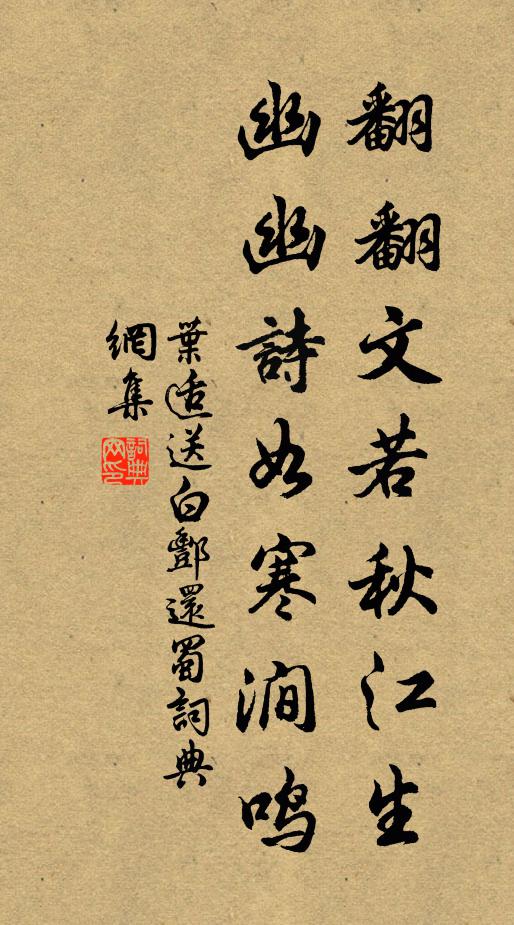 翻翻文若秋江生
幽幽詩如寒澗鸣
葉适送白酆還蜀詞典
網集
詞典
网印